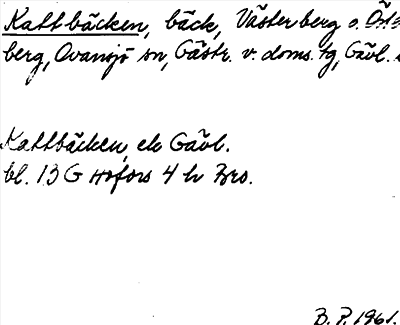 Kattbäcken, bäck, Västerberg o. Öst
berg, Ovansjö sn, Gästr. v. doms. tg, Gävl.
Kattbäcken, ek Gävl.
bl. 13 G Hofors 4 h Bro.
B. P. 1961.